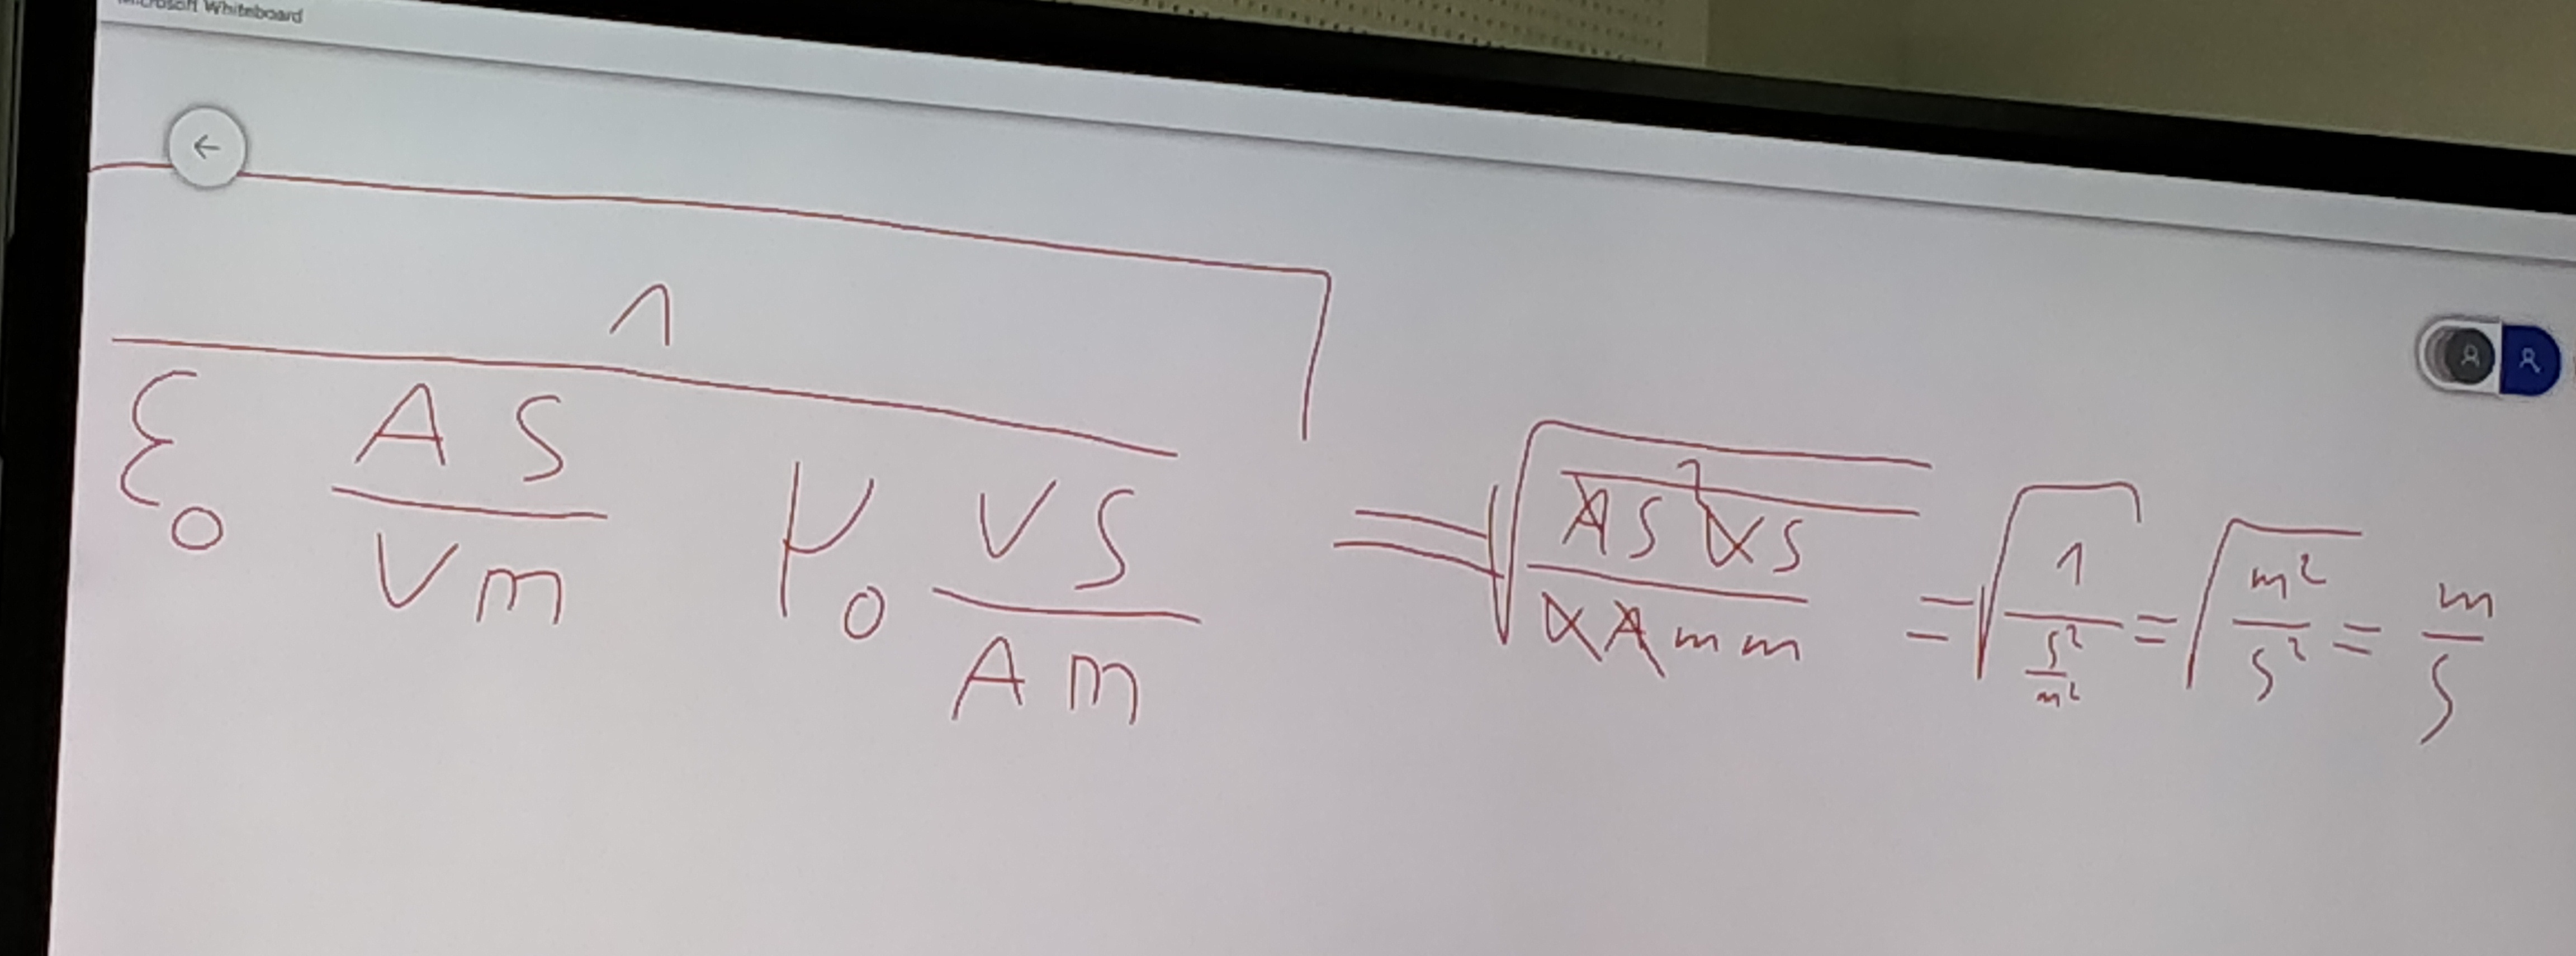 Microsoft Whiteboard
√(1 / (ε₀ (A s / V m) μ₀ (V s / A m))) = √(1 / (A s V s / V A m m)) = √(1 / (s² / m²)) = √(m² / s²) = m / s